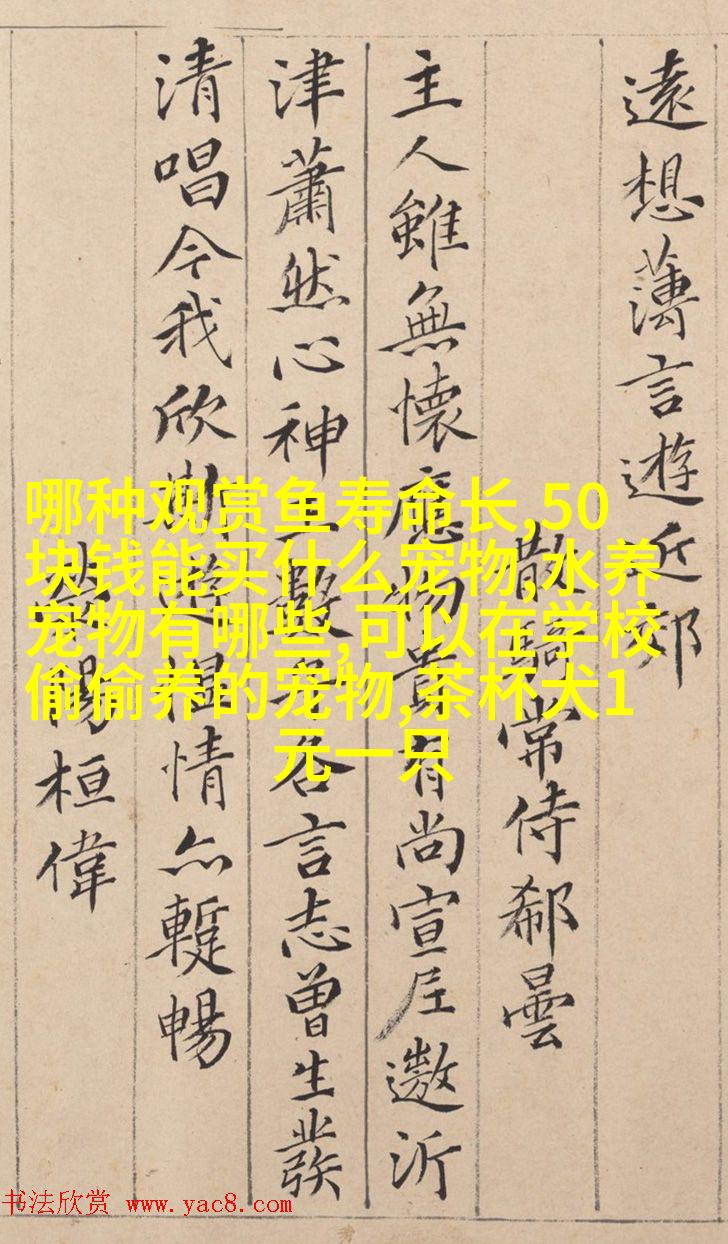 遠想薄言遊近郊
散騎常侍郗曇
主人雖無懷應物貴有尚宣尼遨沂
津蕭然心神王數子各言志曾生發
清唱今我欣斯遊慍情亦蹔暢
桓偉
哪种观赏鱼寿命长,50
块钱能买什么宠物,水养
宠物有哪些,可以在学校
偷偷养的宠物,茶杯犬1
元一只
书法欣赏 www.yac8.com